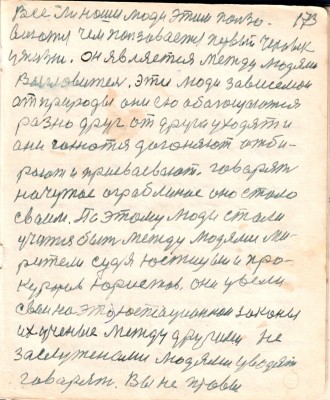 Все ли наши люди этим пользо- 173
ваются чем пользовается первый человек
у жизни. Он является между людями
Эти люди зависемои
от природы они ею обагощаются
разно друг от друга уходят и
они гонются догоняют отби-
рают и присваевают. говорят
на чужое ограбление оно стало
своим. По этому люди стали
учится быть между людями ми-
рители судя юстицыи и про-
куроров юристов. они увели
свои на это законы
их учение между другими не
заслуженами людями уводят
говорят. Вы не правы